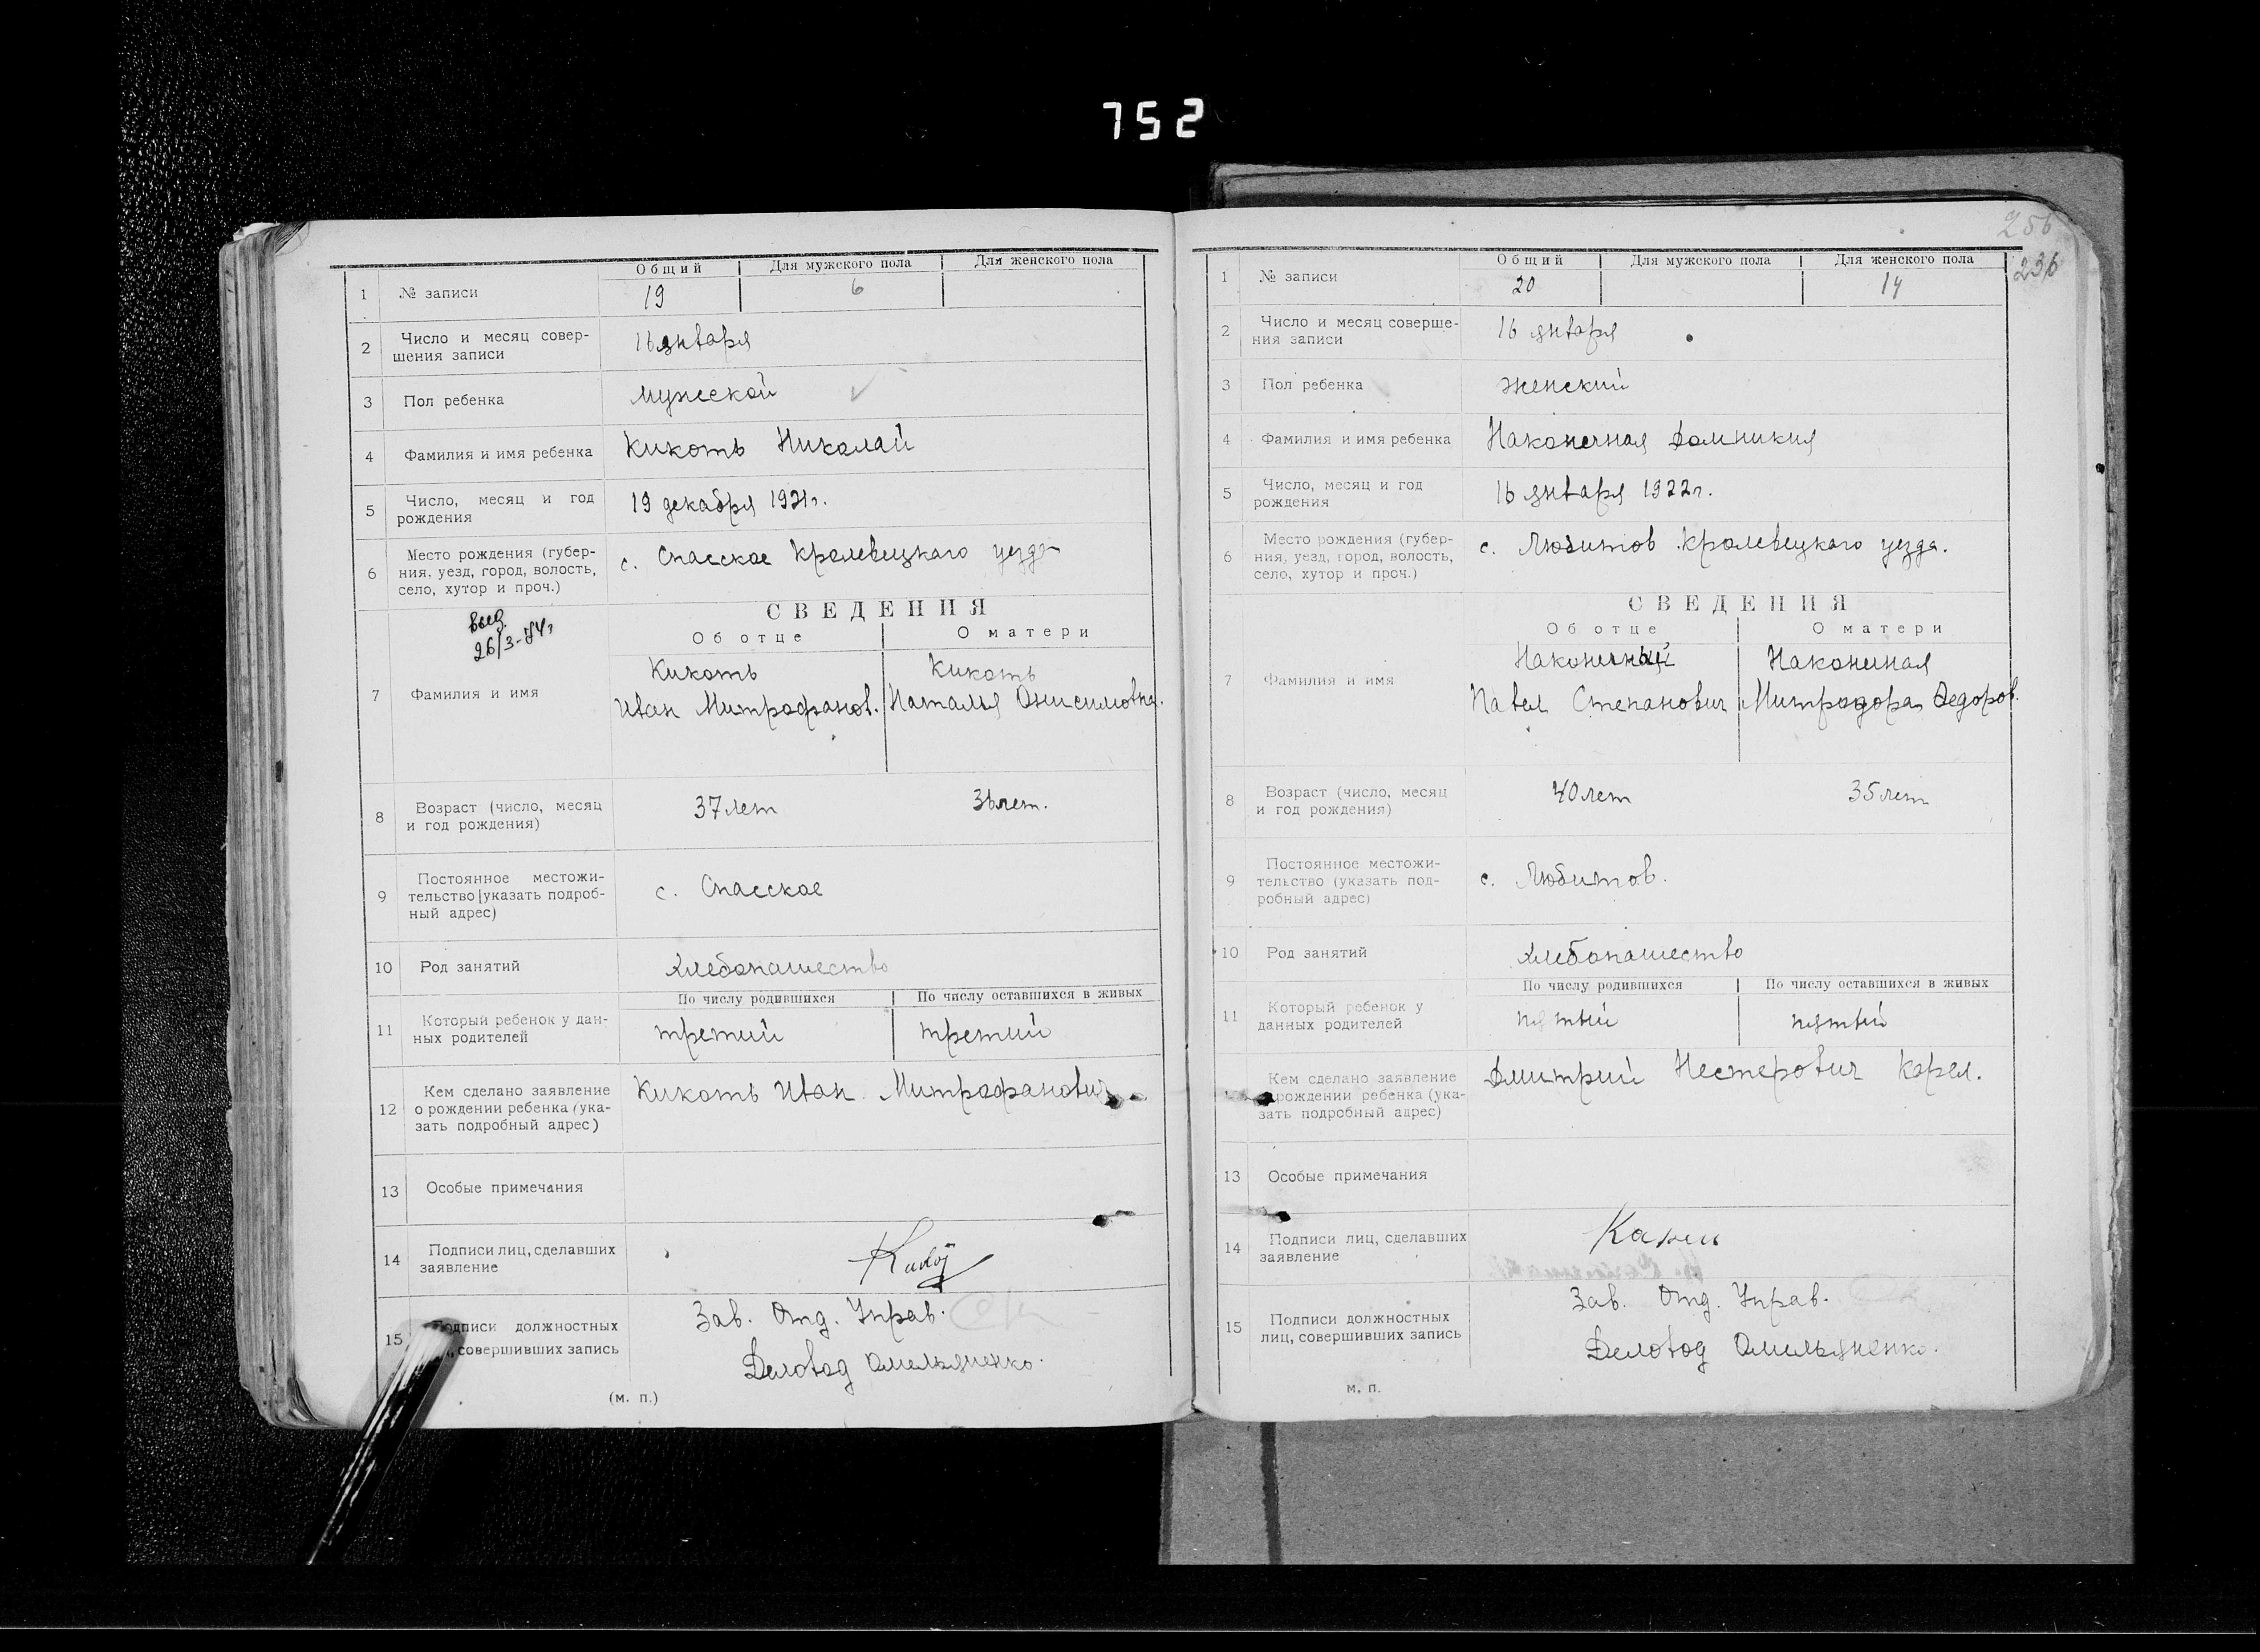 752
Общий Для мужского пола Для женского пола
1 № записи 19 6
2 Число и месяц совер-
шения записи 16 января
3 Пол ребенка мужеской
4 Фамилия и имя ребенка Кикоть Николай
5 Число, месяц и год
рождения 19 декабря 1921г.
6 Место рождения (губер-
ния, уезд, город, волость,
село, хутор и проч.) с. Спасское Кролевецкаго уезда
СВЕДЕНИЯ
Об отце О матери
26/3-74г
7 Фамилия и имя
Кикоть Кикоть
Иван Митрофанов. Наталья Онисимовна.
8 Возраст (число, месяц
и год рождения) 37 лет 36 лет.
9 Постоянное местожи-
тельство [указать подроб-
ный адрес) с. Спасское
10 Род занятий хлебопашество
По числу родившихся По числу оставшихся в живых
11 Который ребенок у дан-
ных родителей третий третий
12 Кем сделано заявление
о рождении ребенка (ука-
зать подробный адрес) Кикоть Иван Митрофанович
13 Особые примечания
14 Подписи лиц, сделавших
заявление
15 Подписи должностных
, совершивших запись
Зав. Отд. Управ.
Деловод Омельяненко.
(м. п.)
256
236
Общий Для мужского пола Для женского пола
1 № записи 20 14
2 Число и месяц соверше-
ния записи 16 января
3 Пол ребенка женский
4 Фамилия и имя ребенка Наконечная Домникия
5 Число, месяц и год
рождения 16 января 1922г.
6 Место рождения (губер-
ния, уезд, город, волость,
село, хутор и проч.) с. Любитов Кролевецкаго уезда.
СВЕДЕНИЯ
Об отце О матери
7 Фамилия и имя
Наконечный Наконечная
Павел Степанович Митродора Федоров.
8 Возраст (число, месяц
и год рождения) 40 лет 35 лет
9 Постоянное местожи-
тельство (указать под-
робный адрес) с. Любитов.
10 Род занятий хлебопашество
По числу родившихся По числу оставшихся в живых
11 Который ребенок у
данных родителей пятый пятый
Кем сделано заявление
рождении ребенка (ука-
зать подробный адрес) Дмитрий Нестерович Карел.
13 Особые примечания
14 Подписи лиц, сделавших
заявление
15 Подписи должностных
лиц, совершивших запись
Зав. Отд. Управ.
Деловод Омельяненко.
м. п.